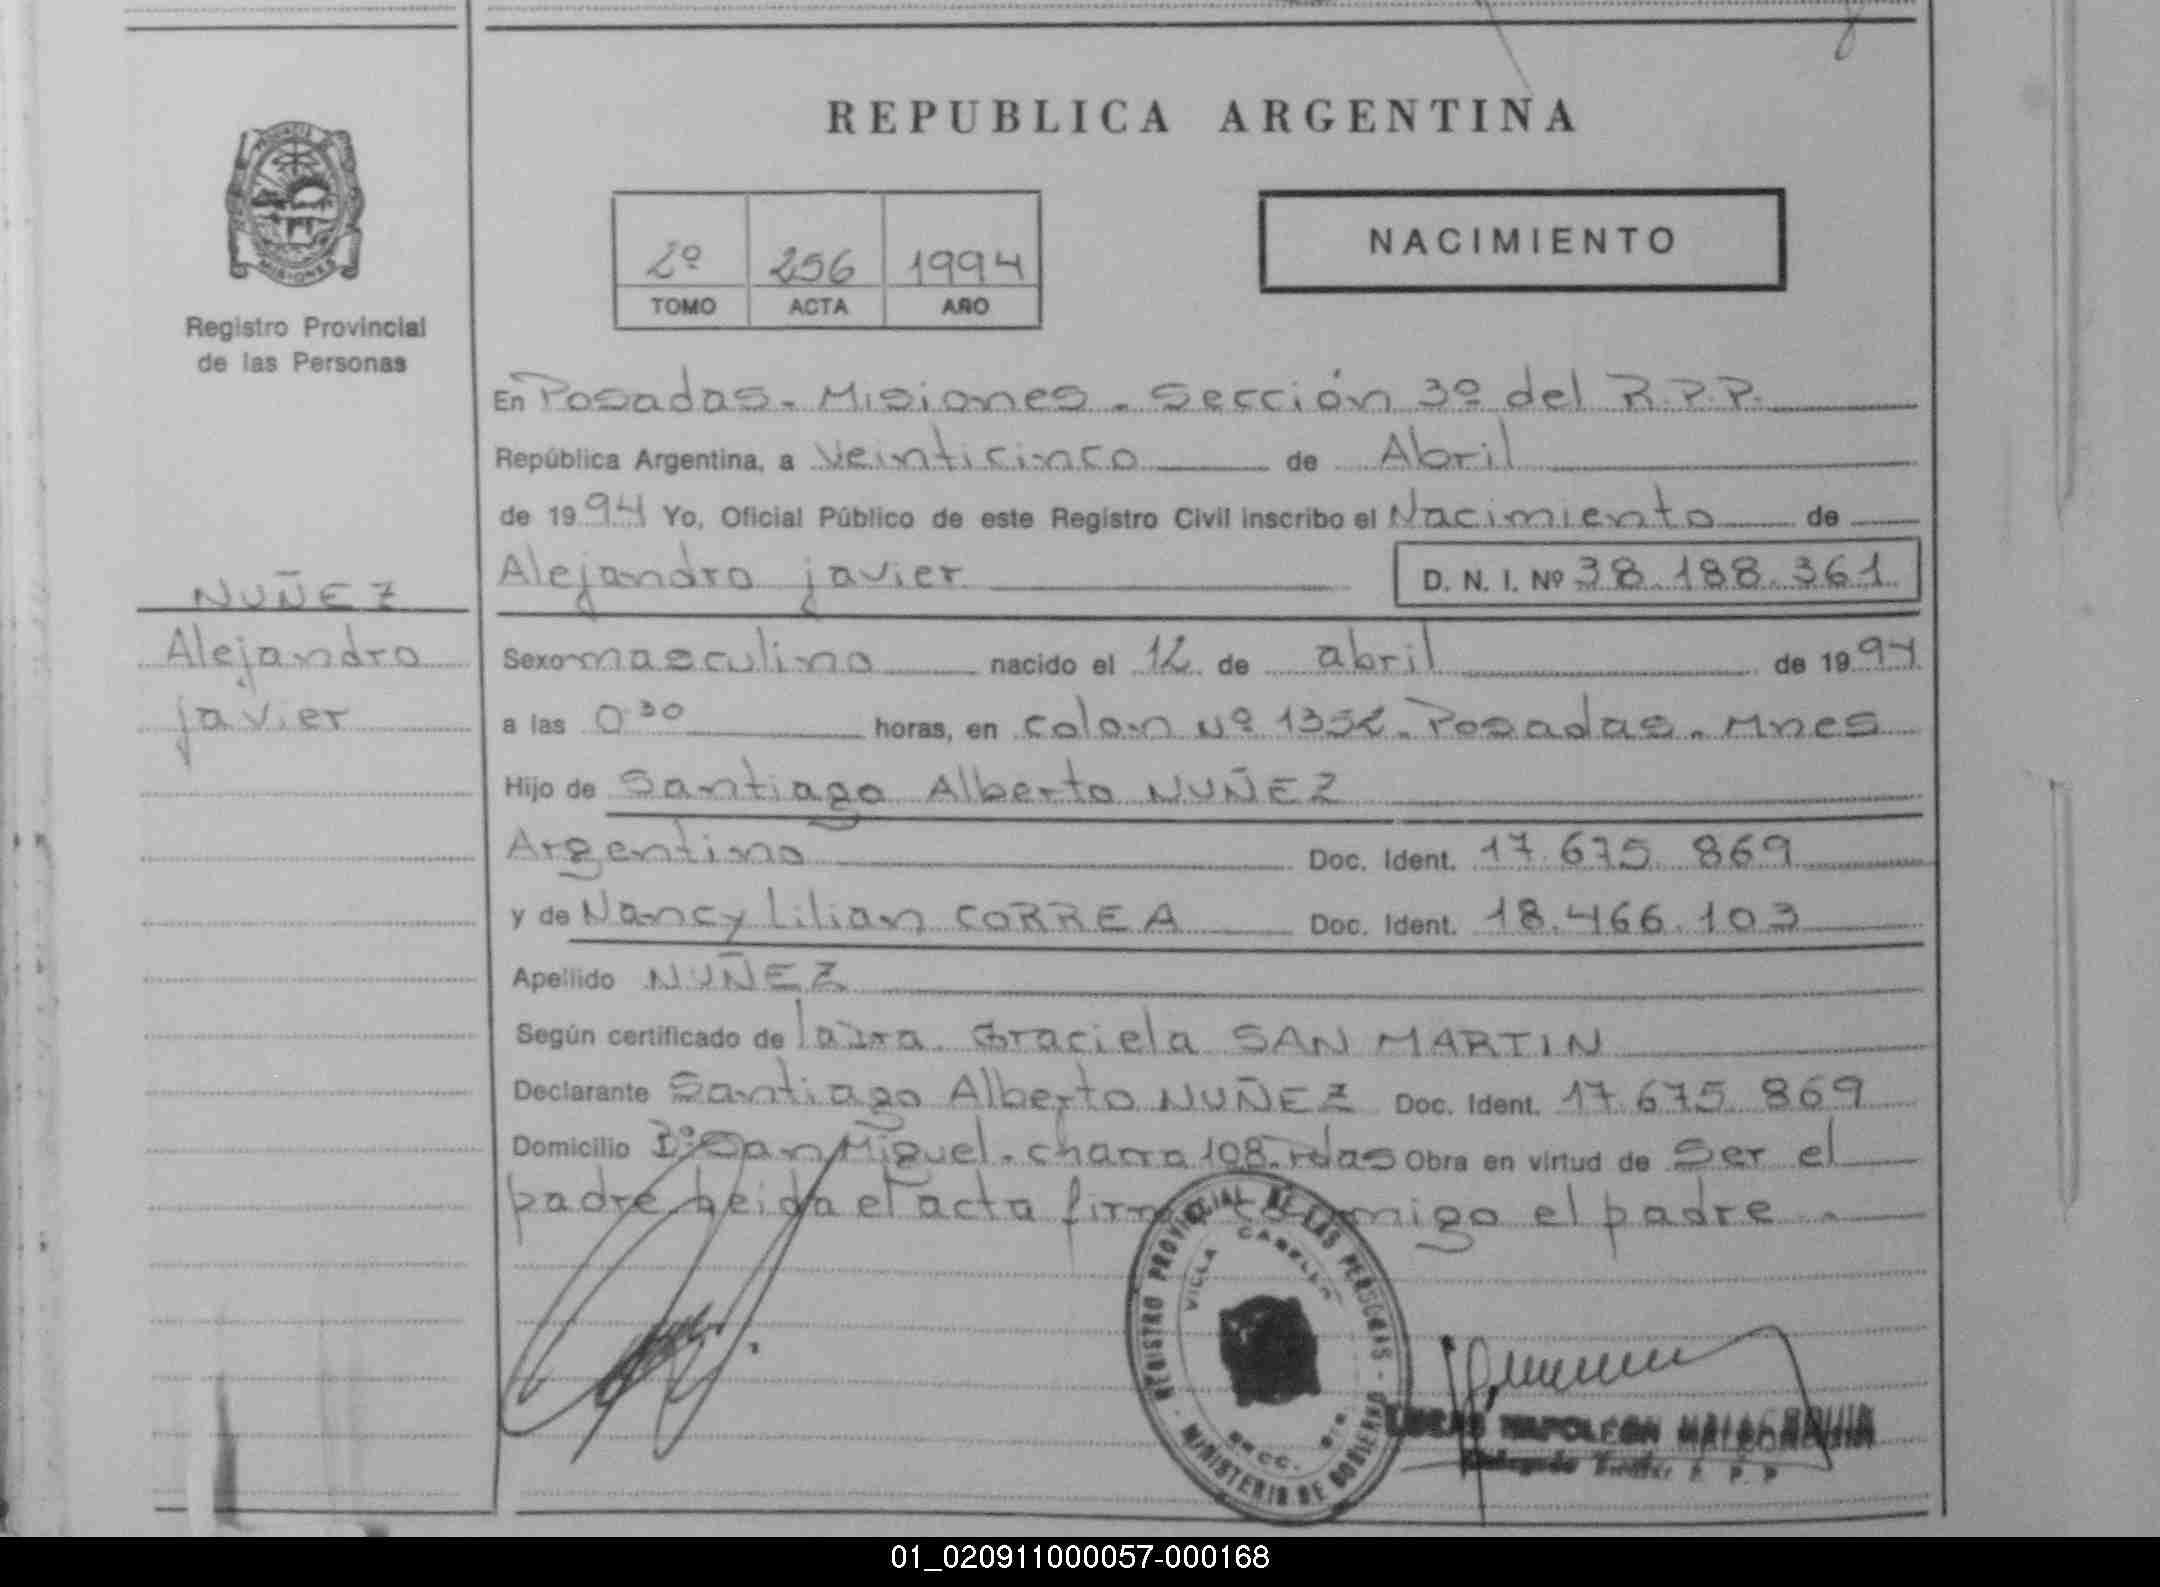 REPUBLICA ARGENTINA
PROVINCIA
MISIONES
Registro Provincial
de las Personas
2º 256 1994
TOMO ACTA AÑO
NACIMIENTO
En Posadas - Misiones - Sección 3º del R.P.P.
República Argentina, a Veinticinco de Abril
de 1994 Yo, Oficial Público de este Registro Civil inscribo el Nacimiento de
Alejandro javier D. N. I. Nº 38.188.361
NUÑEZ
Alejandro
javier
Sexo masculino nacido el 12 de abril de 1994
a las 0 30 horas, en colon Nº 1352 - Posadas - Mnes
Hijo de Santiago Alberto NUÑEZ
Argentino Doc. Ident. 17.675.869
y de Nancy Lilian CORREA Doc. Ident. 18.466.103
Apellido NUÑEZ
Según certificado de la Graciela SAN MARTIN
Declarante Santiago Alberto NUÑEZ Doc. Ident. 17.675.869
Domicilio Bº San Miguel - chacra 108 - Pdas Obra en virtud de Ser el
padre. Leida el acta firma conmigo el padre -
REGISTRO PROVINCIAL DE LAS PERSONAS - MINISTERIO DE GOBIERNO -
VILLA CABELLO
SECC. 3ra.
LUCAS NAPOLEON
Delegado Titular R. P. P
01_020911000057-000168